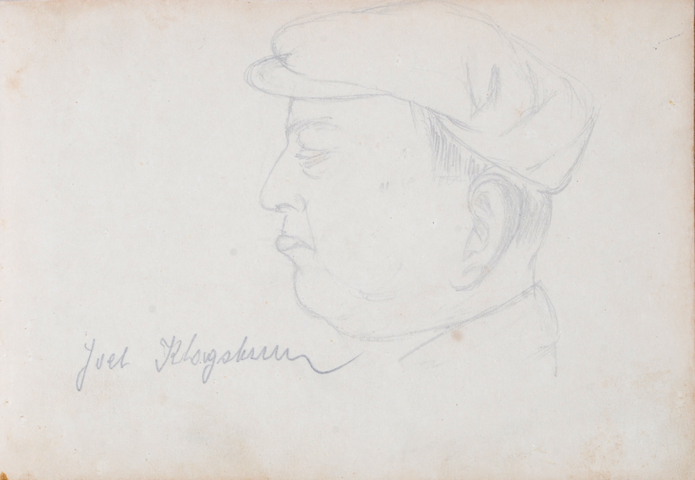 Joel Klagsbrun